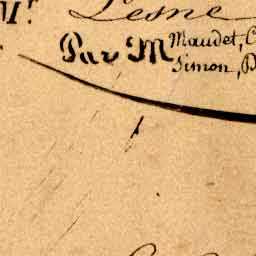 Mr. Lesne
Par M Maudet, C
Simon, B